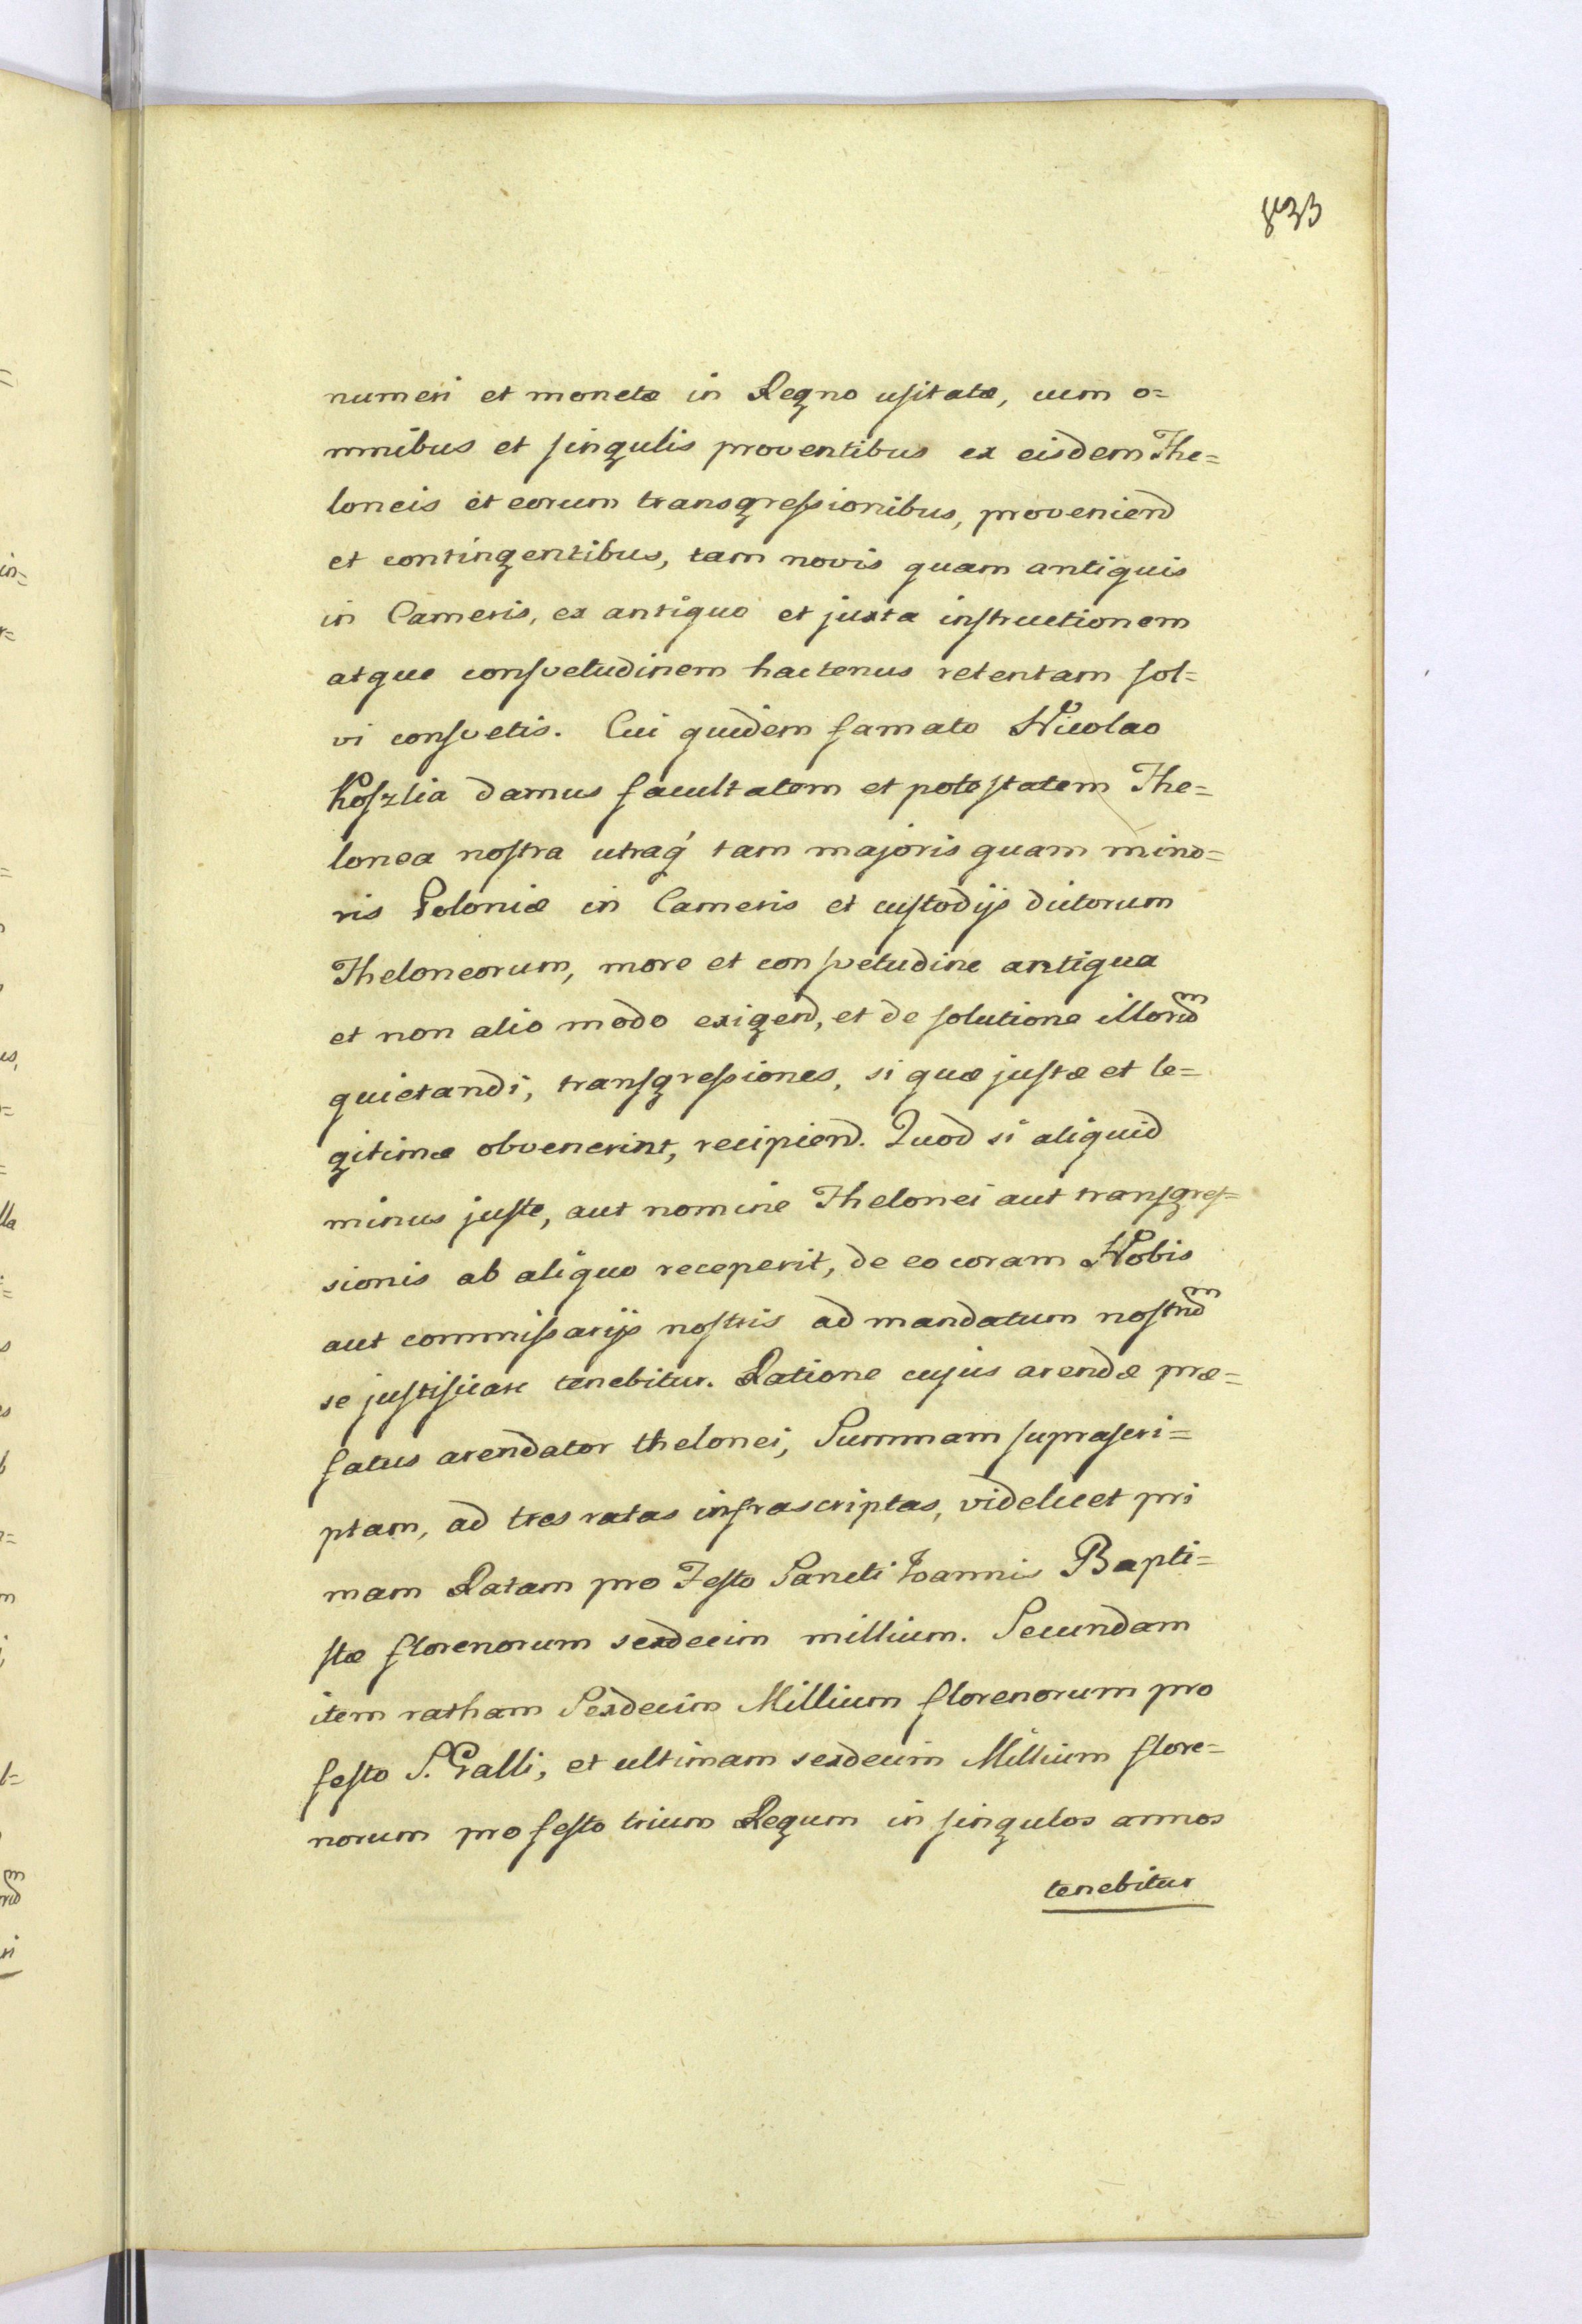 833
numeri et monetæ in Regno usitatæ, cum o=
mnibus et singulis proventibus ex eisdem The=
loneis et eorum transgressionibus, proveniend
et contingentibus, tam novis quam antiquis
in Cameris, ex antiquo et juxta instructionem
atque consvetudinem hactenus retentam sol=
vi consvetis. Cui quidem famato Nicolao
damus facultatem et potestatem The=
lonea nostra utraq́ tam majoris quam mino=
ris Poloniæ in Cameris et custodijs dictorum
Theloneorum, more et consvetudine antiqua
et non alio modo exigend, et de solutione illorūm
quietandi, transgressiones, si quæ justæ et le=
gitimæ obvenerint, recipiend. Quod si aliquid
minus juste, aut nomine Thelonei aut transgres=
sionis ab aliquo receperit, de eo coram Nobis
aut commissarijs nostris ad mandatum nostrūm
se justificare tenebitur. Ratione cujus arendæ præ=
fatus arendator thelonei, Summam suprascri=
ptam, ad tres ratas infrascriptas, videlicet pri
mam Ratam pro Festo Sancti Ioannis Bapti=
stæ florenorum sexdecim millium. Secundam
item ratham Sexdecim Millium florenorum pro
festo S. Galli, et ultimam sexdecim Millium flore=
norum pro festo trium Regum in singulos annos
tenebitur